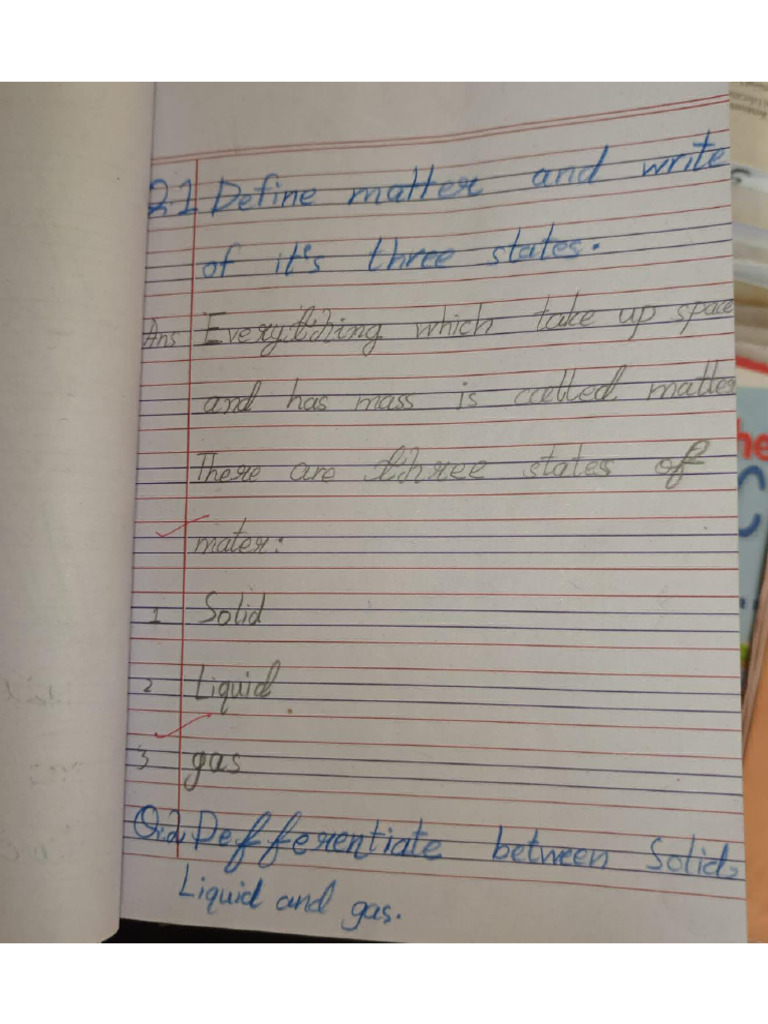 Q.1 Define matter and write
of it's three states.
Ans Everything which take up space
and has mass is called matter
There are three states of
mater:
1 Solid
2 Liquid
3 gas
Q.2 Defferentiate between Solid,
Liquid and gas.
he
C